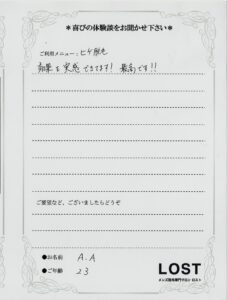 ＊喜びの体験談をお聞かせ下さい＊
ご利用メニュー：ヒゲ脱毛
効果を実感できてます！最高です！！
ご要望など、ございましたらどうぞ
●お名前 A.A
●ご年齢 23
LOST
メンズ脱毛専門サロン ロスト